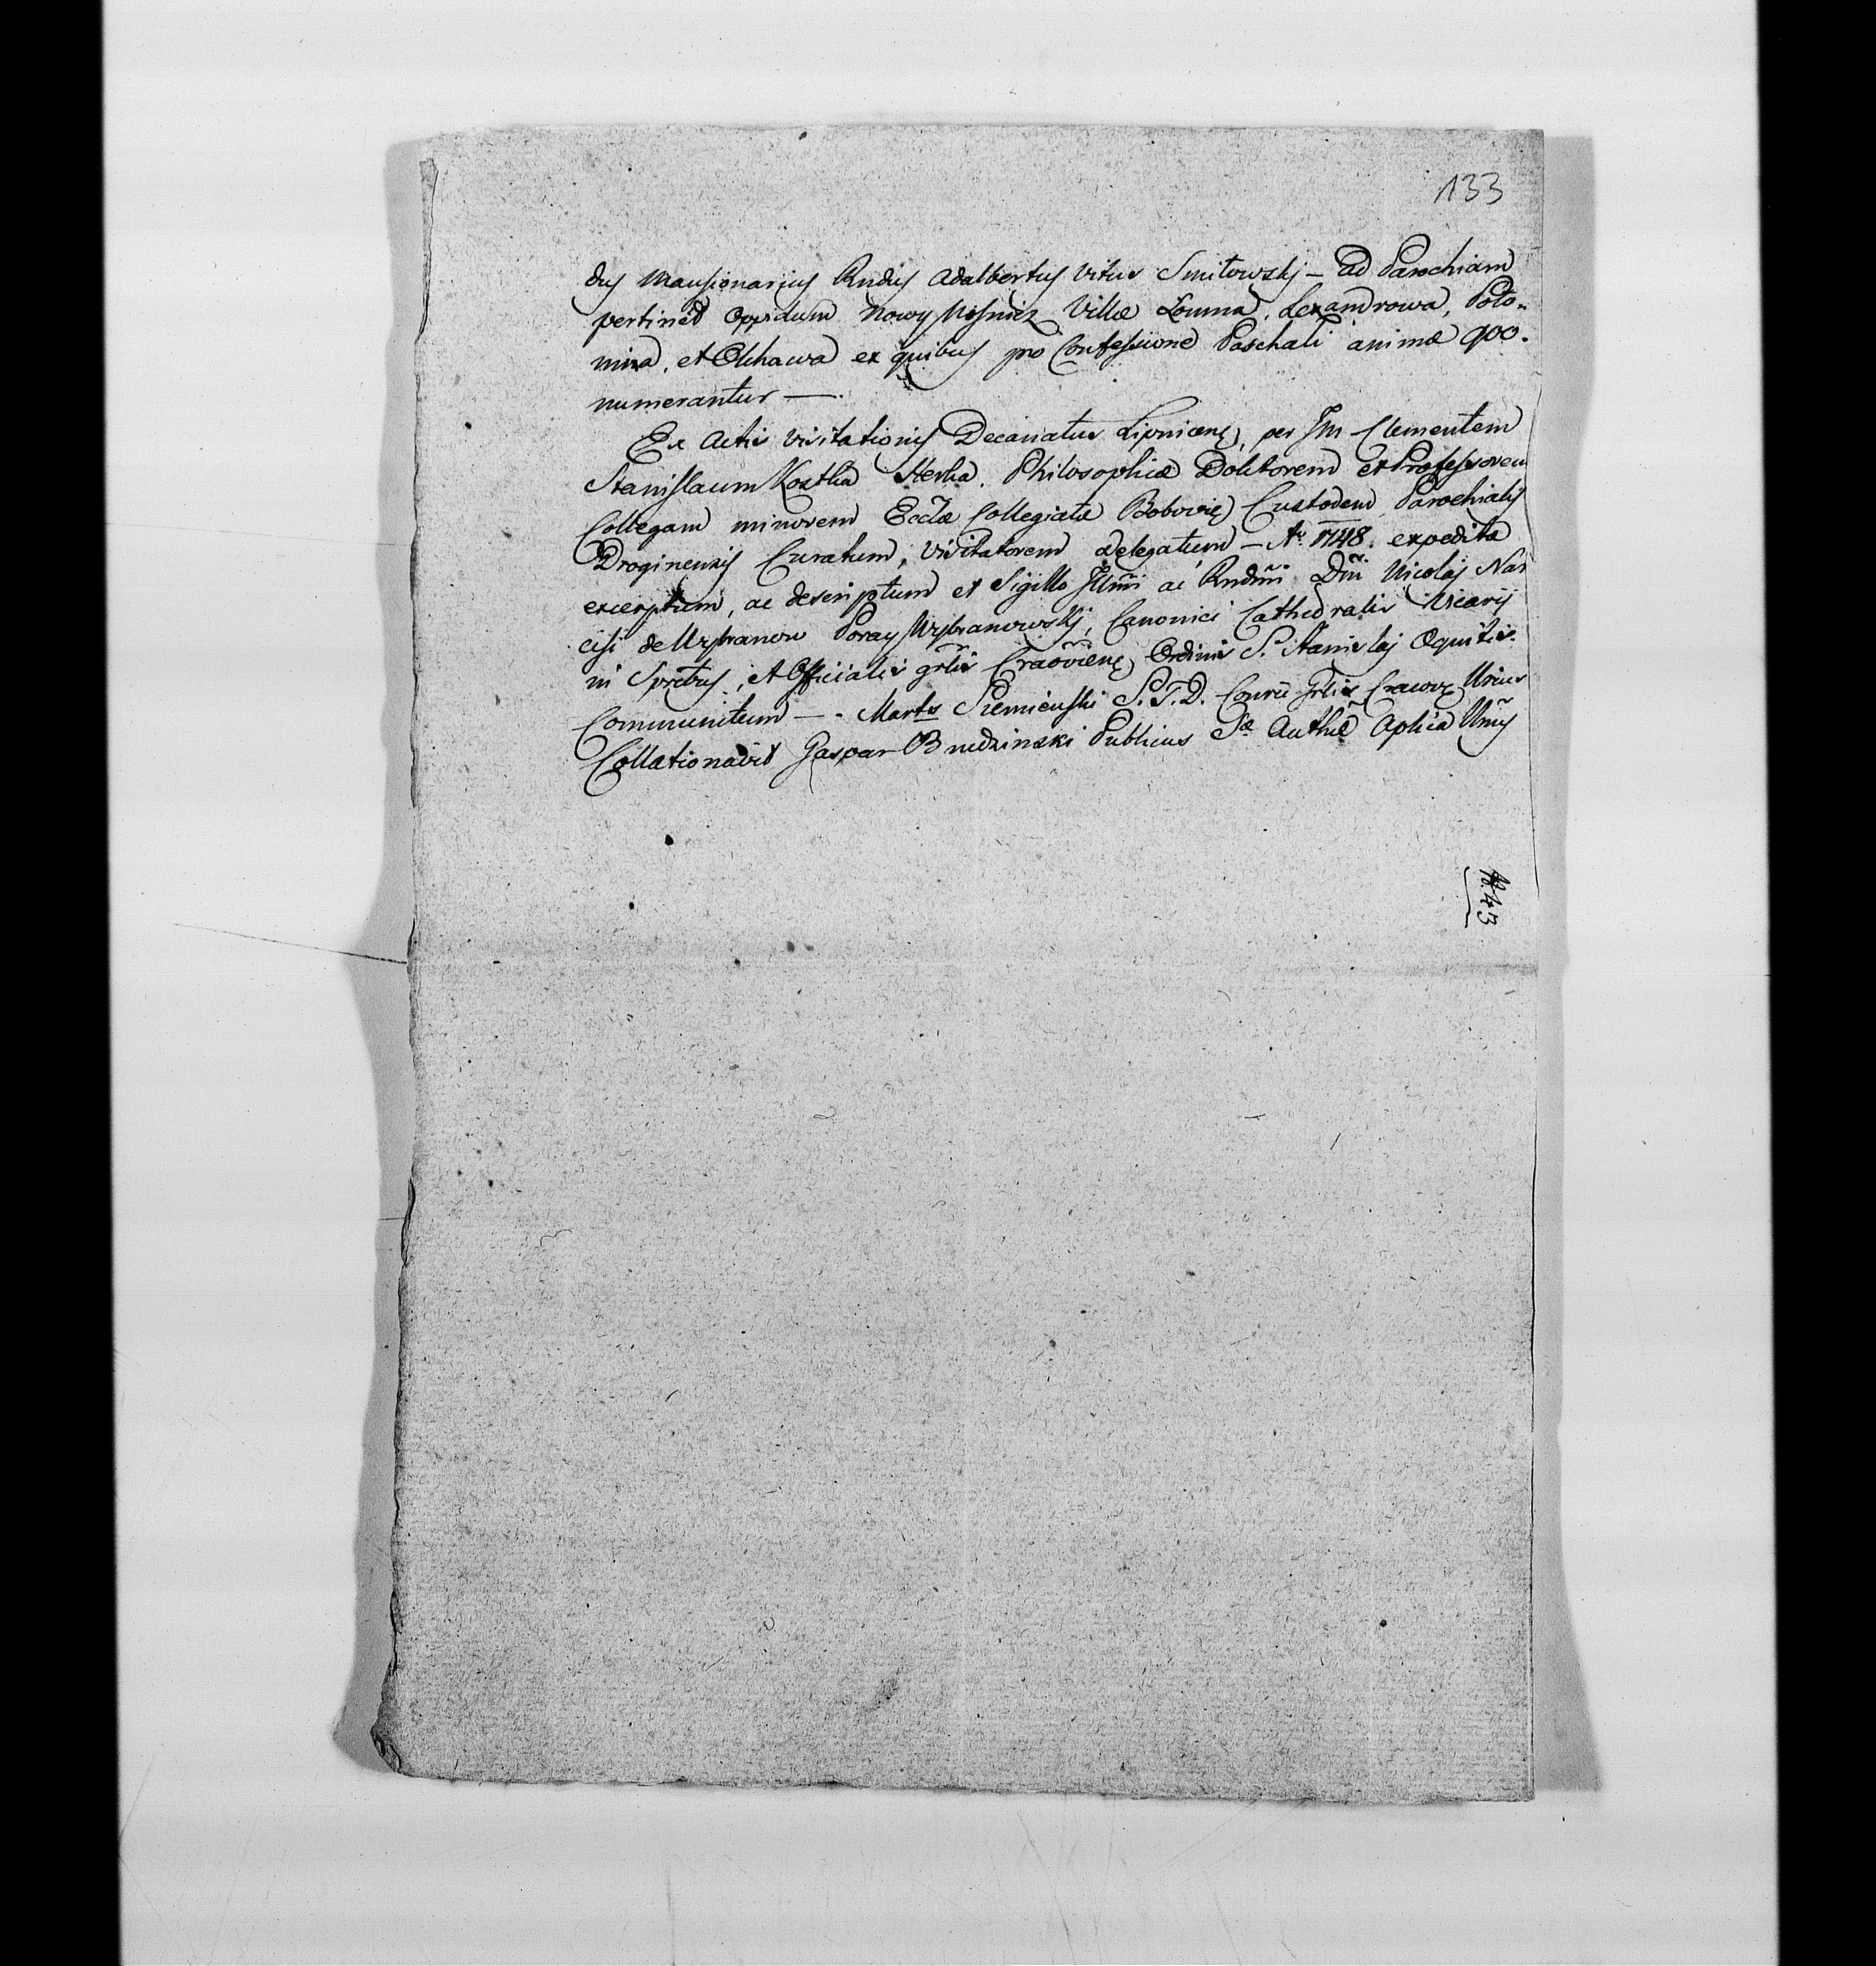 133
dus Mansionarius Rndus Adalbertus Vitus Smiłowskj – Ad Parochiam
pertinet Oppidum Nowy Wisnicz Villæ Łomna, Lexandrowa, Poło-
mina, et Olchawa ex quibus pro Confessione Paschali animæ 900.
numerantur —.
Ex Actis Visitationis Decanatus Lipnicens, per Clementem
Stanislaum Kostka Herka, Philosophiæ Doktorem et Professorem
Collegam minorem Ecclæ Collegiatæ Bobovien Custodem, Parochialis
Droginensis Curatum, Visitatorem delegatum – Ao 1748. expedita
excerptum, ac descriptum et Sigillo Illmi ac Rndmi Dni Nicolaj Nar
cisi de Wybranow Poray Wybranowskj, Canonici Cathedralis Vicarij
in Spretbus, et Officialis grlis Cracoviens Ordinis S. Stanislaj Equitis
Communitum —. Marts Siemieński S.T.D. Grlis Cracov
Collationavit Gaspar Budzinski Publicus Sa Authe Aplica
No 43